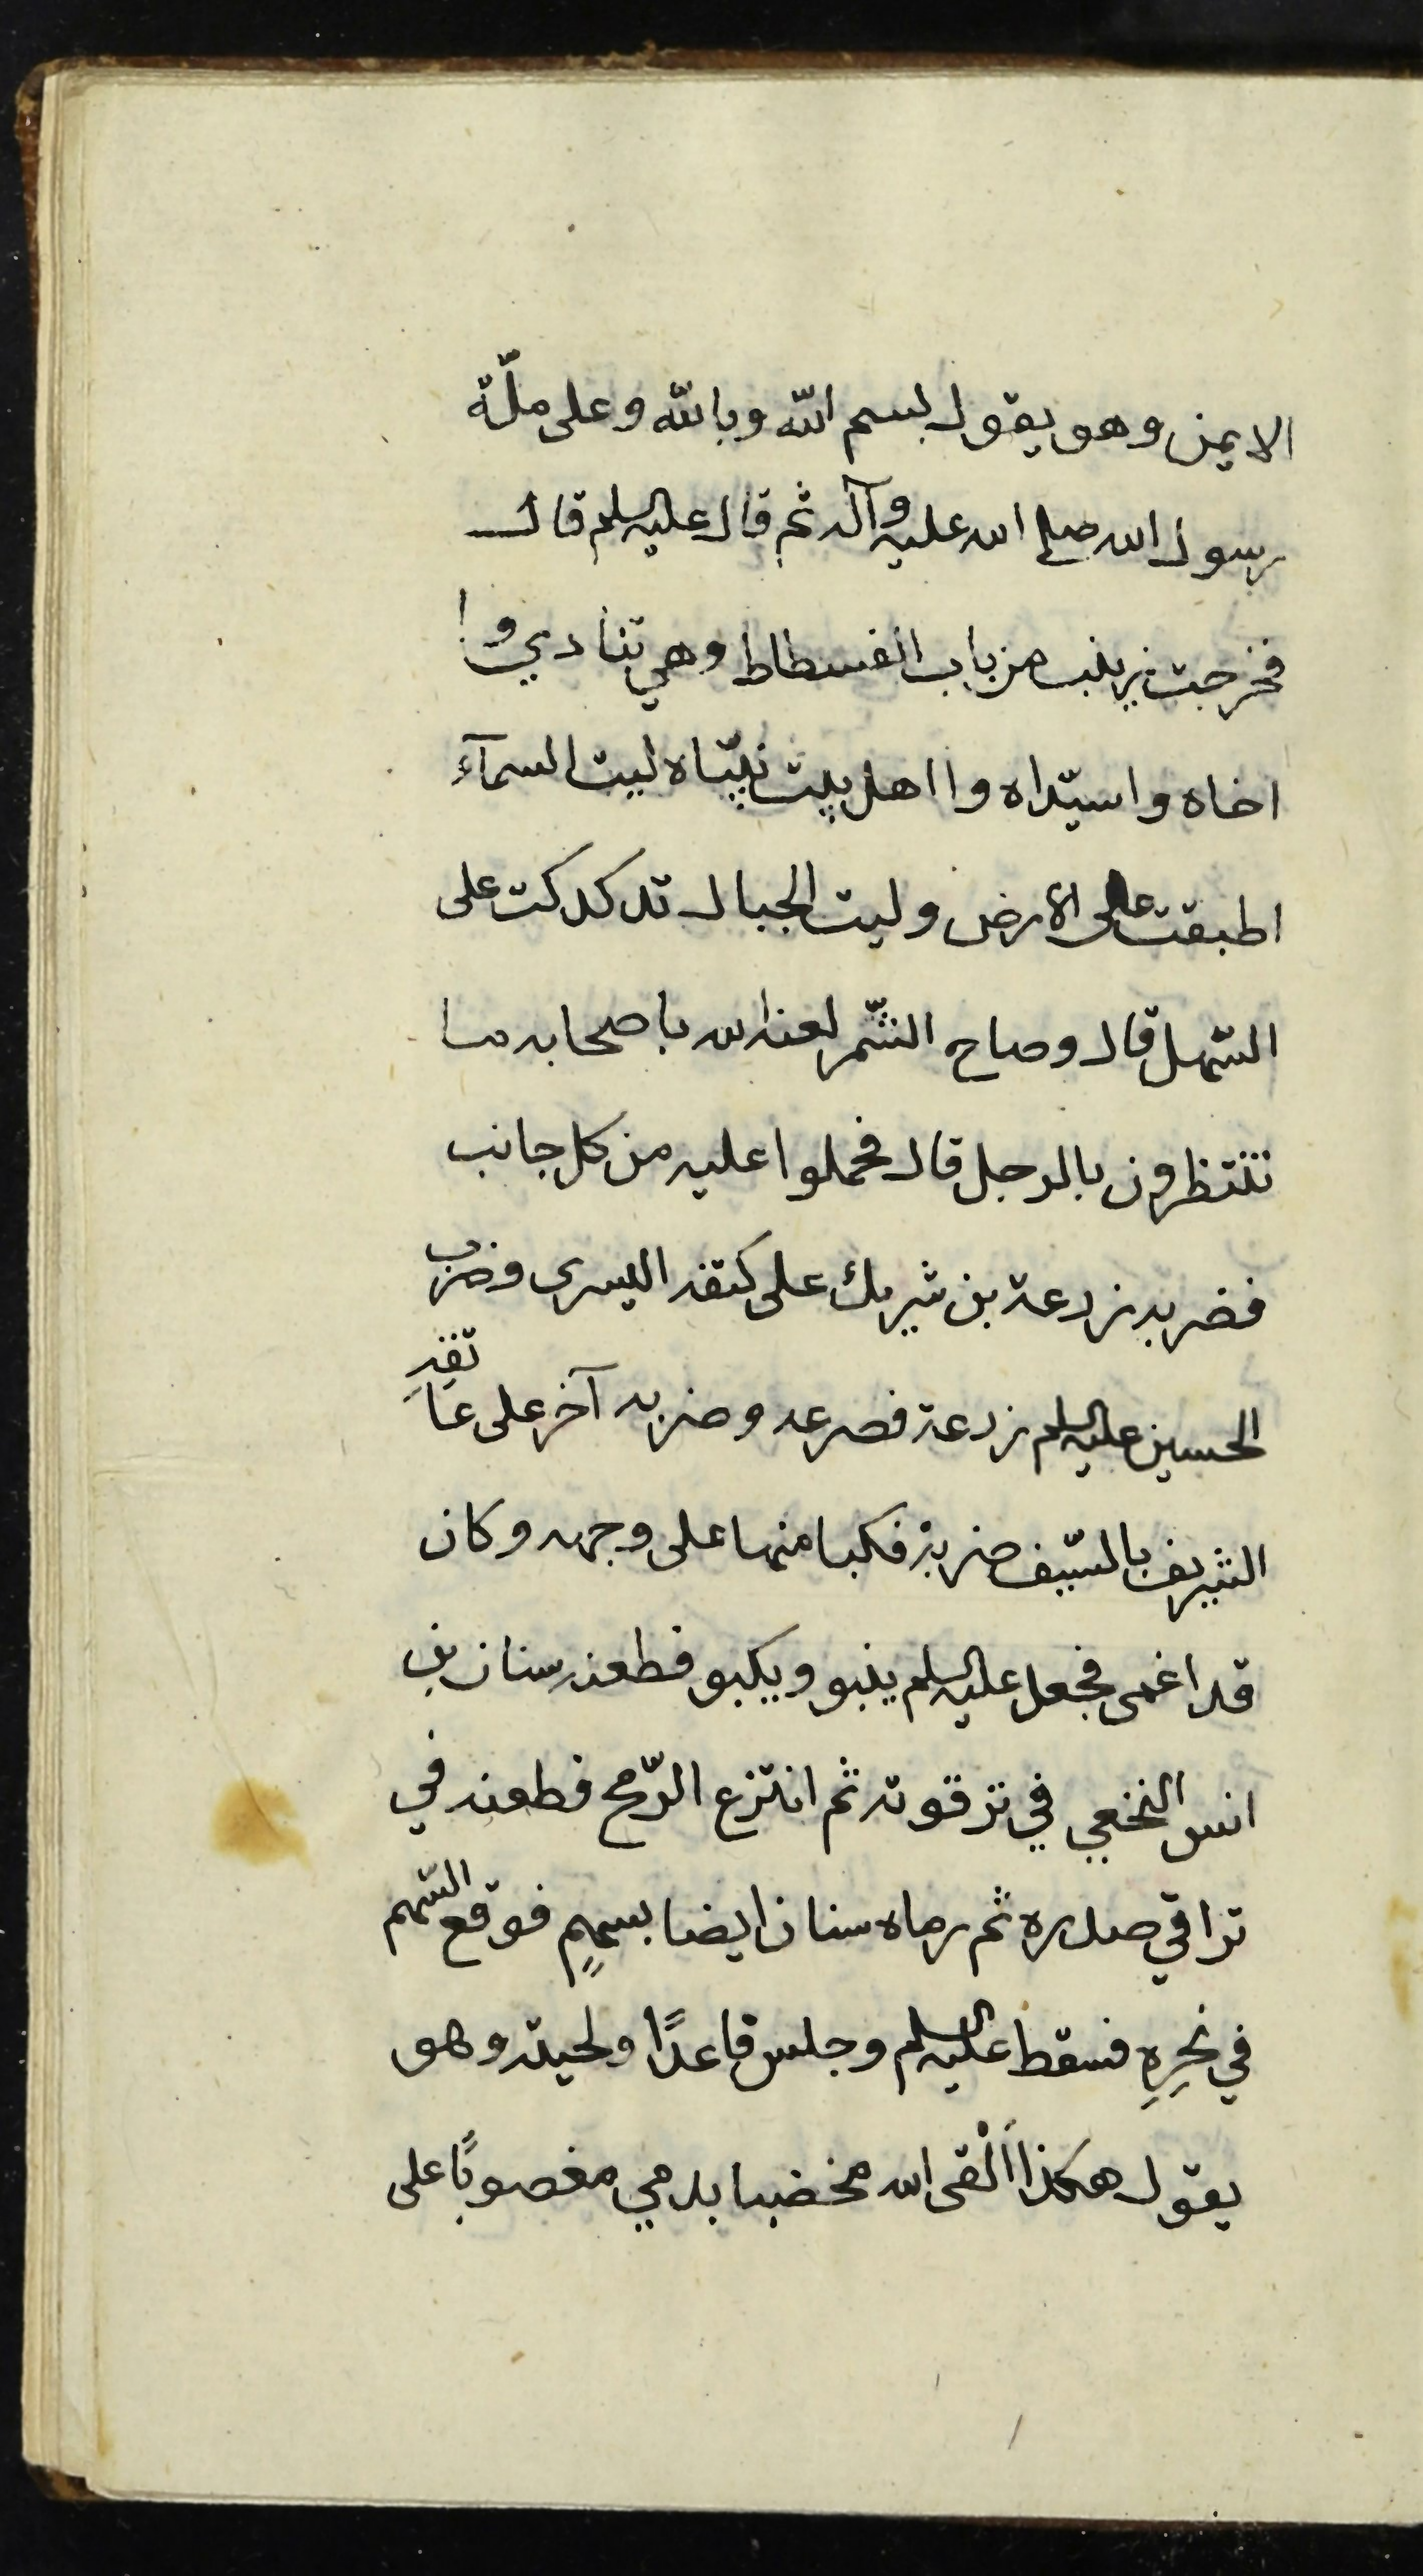 الايمن وهو يقول بسم الله وبالله وعلى ملّة
رسول الله صلى الله عليه وآله ثم قال عليه السلم قال
فخرجت زينب من باب الفسطاط وهي تنادي وا
اخاه واسيّداه وا اهل بيتاه ليت السمآء
اطبقت على الأرض وليت الجبال تدكدكت على
السّهل قال وصاح الشّمر لعنه الله باصحابه ما
تنتظرون بالرجل قال فحملوا عليه من كل جانب
فضربه زرعة بن شريك على كتفه اليسرى وضرب
الحسين عليه السلم زرعة فصرعه وضربه آخر على عاتقه
الشريف بالسّيف ضربة فكبا منها على وجهه وكان
قد اغمى فجعل عليه السلم ينبو ويكبو فطعنه سنان بن
انس النخعي في ترقوته ثم انتزع الرّمح فطعنه في
تراقي صدره ثم رماه سنان ايضا بسهمٍ فوقع السّهم
في نحرِهِ فسقط عليه السلم وجلس قاعدًا ولحيته وهو
يقول هكذا اَلْقى الله مخضبا بدمي مغصوبًا على